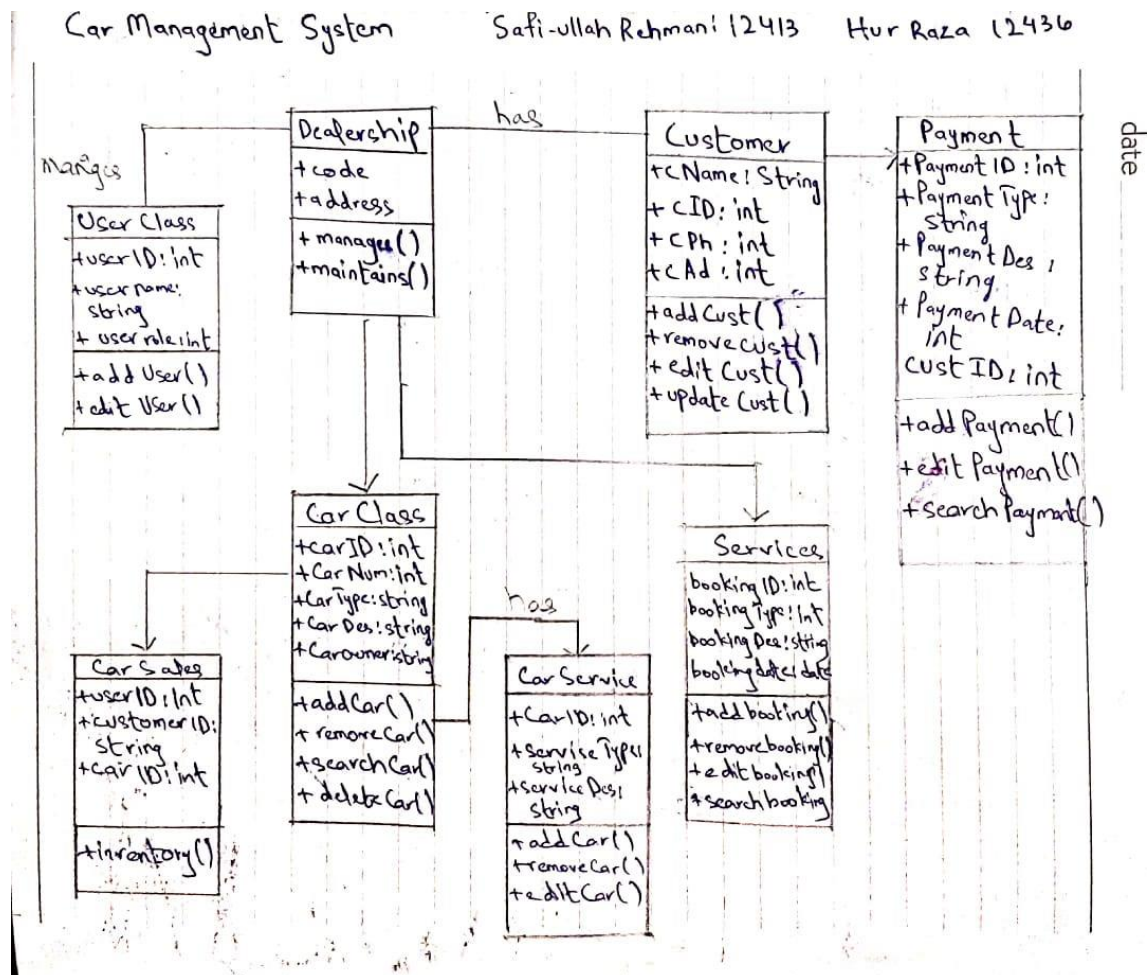 Car Management System
Safi-ullah Rehmani 12413
Hur Raza 12436
date
manges
has
Dealership
+code
+address
+ manages()
+maintains()
Customer
+cName: String
+ cID: int
+cPh : int
+cAd : int
+addCust()
+removecust()
+ editCust()
+updateCust()
Payment
+Payment ID: int
+Payment Type:
string
+Payment Des:
string
+ Payment Date:
int
Cust ID: int
+addPayment()
+edit Payment()
+searchPayment()
User Class
+userID: int
+username:
string
+ user role: int
+add User()
+edit User()
Car Class
+carID: int
+CarNum: int
+CarType: string
+CarDes: string
+Carowner: string
+addCar()
+ removeCar()
+searchCar()
+ deleteCar()
has
Services
bookingID: int
bookingType: Int
bookingDes: string
bookingdate: date
+addbooking()
+removebooking()
+editbooking()
+searchbooking
Car Sales
+userID: Int
+customerID:
string
+carID: int
+inventory()
Car Service
+CarID: int
+serviseType:
string
+serviceDes:
string
+addCar()
+removeCar()
+editCar()